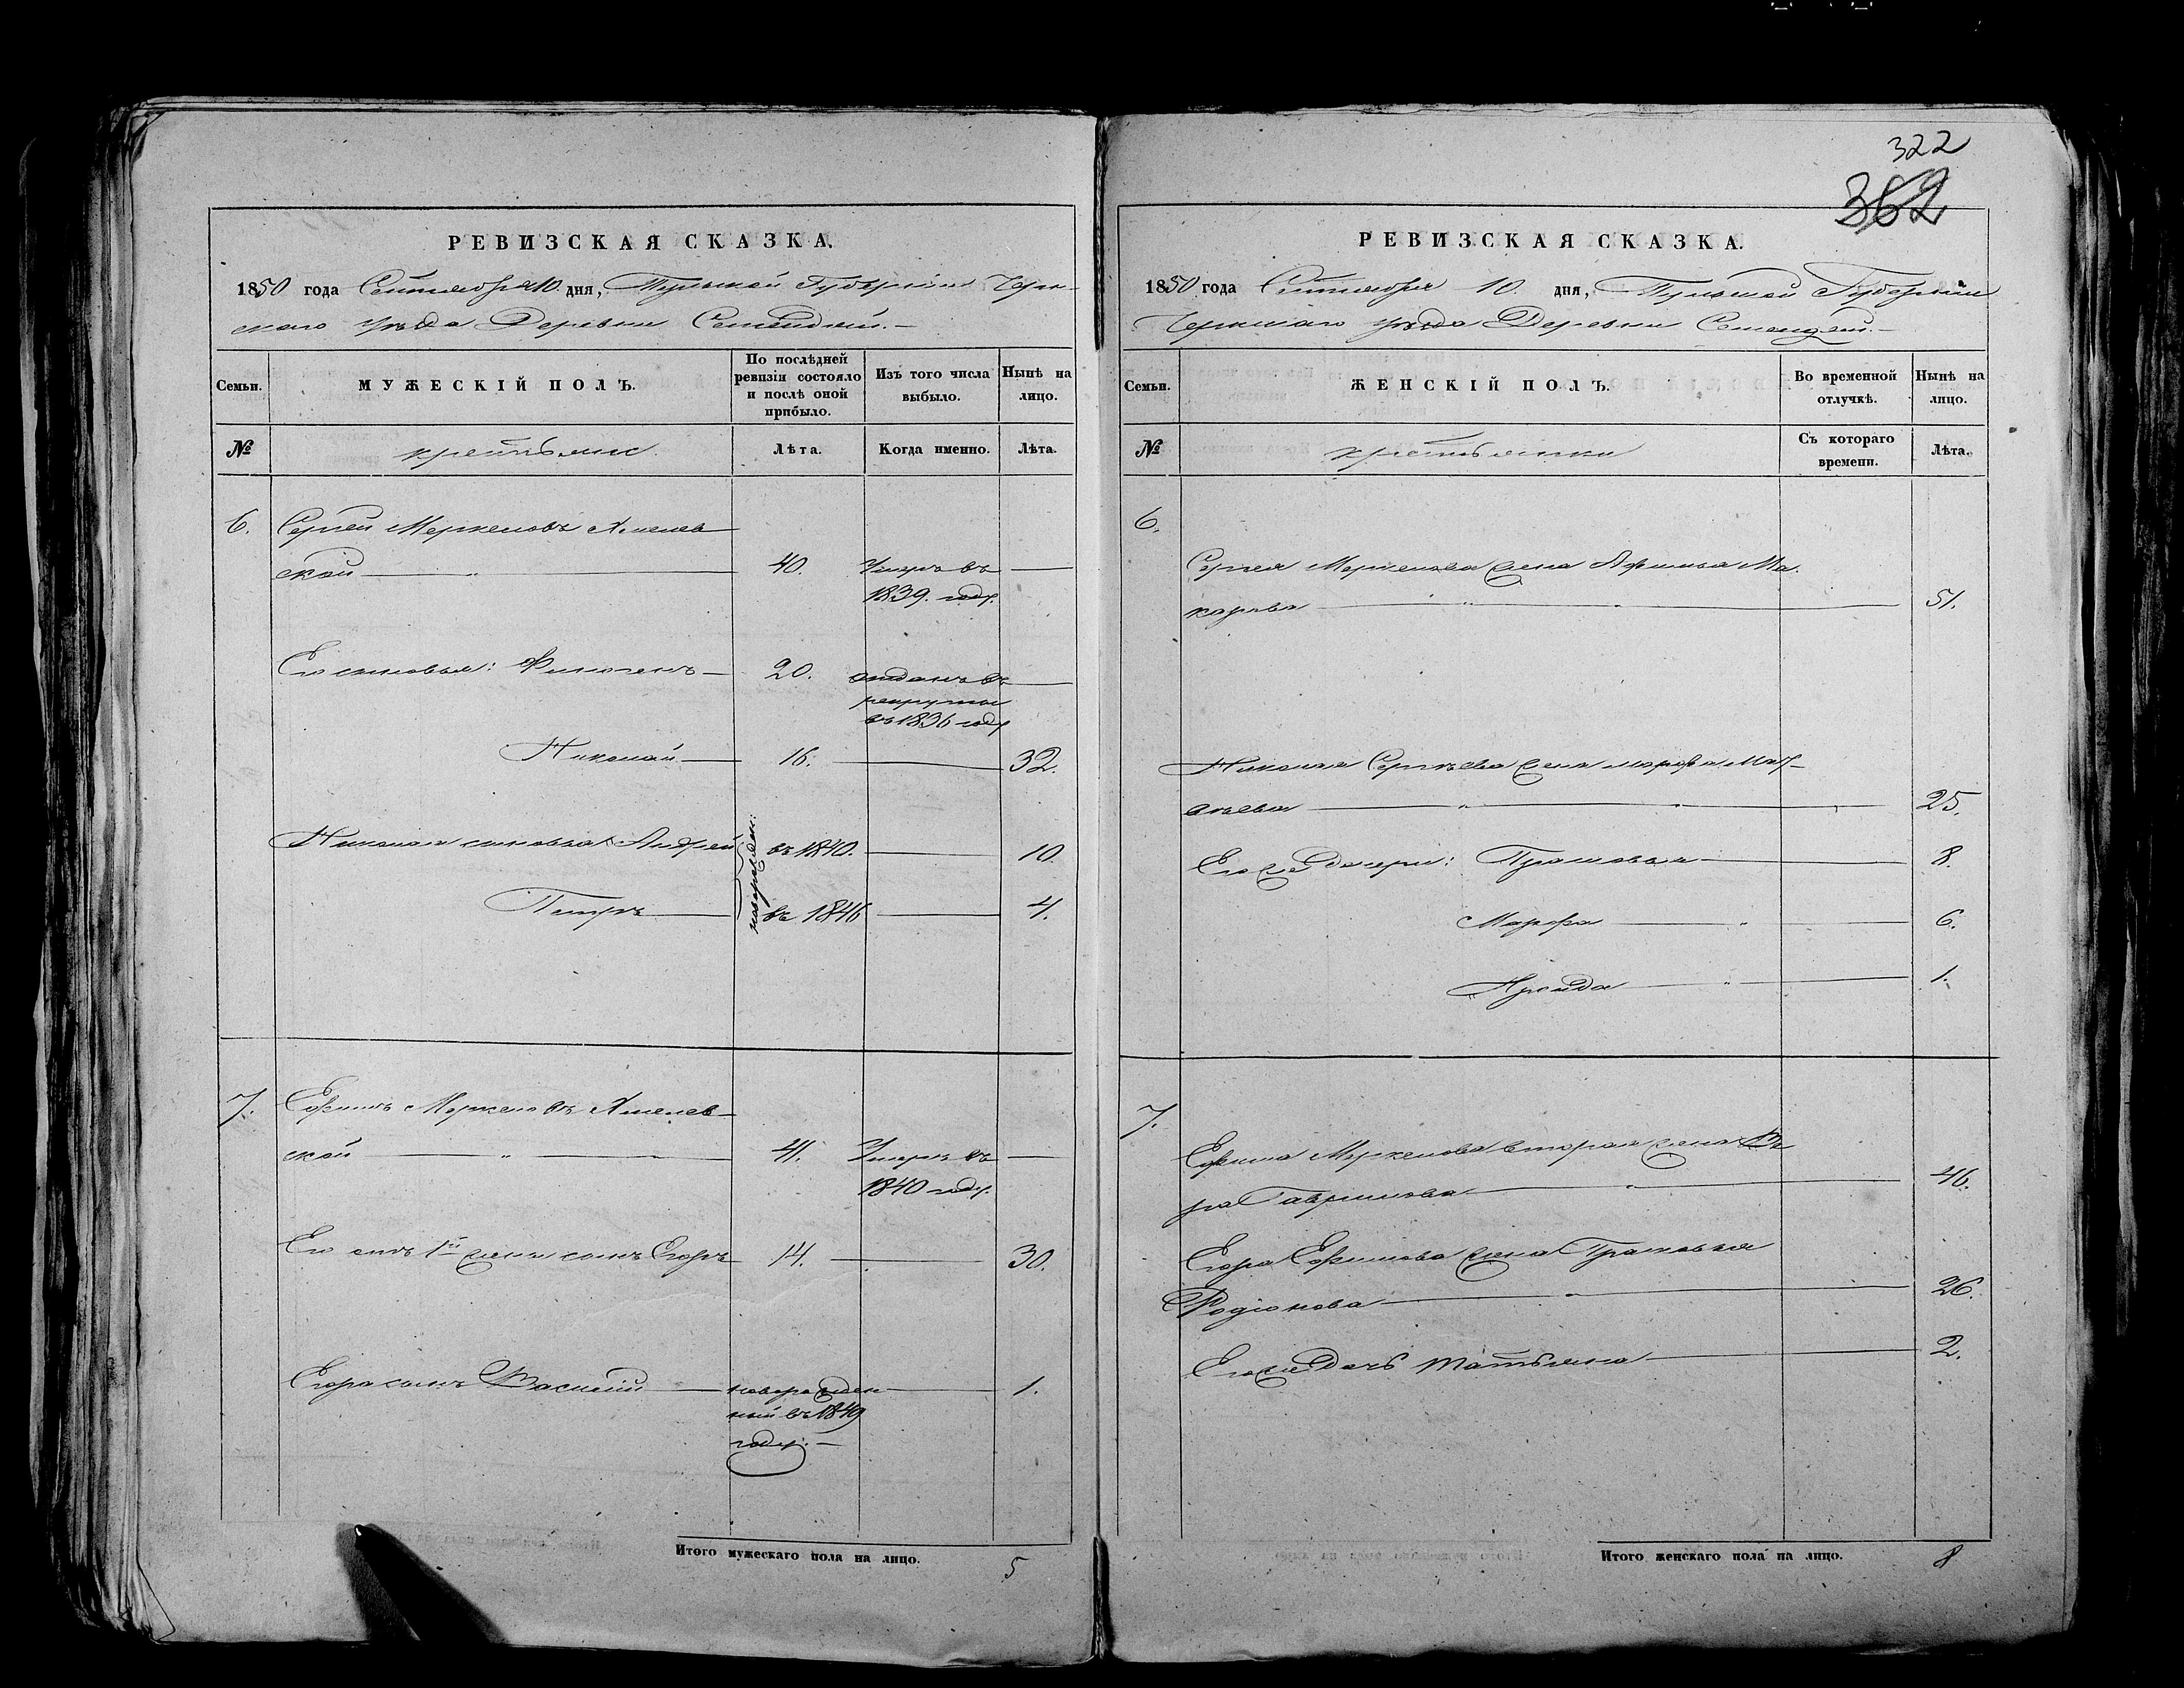 322
362
РЕВИЗСКАЯ СКАЗКА.
1850 года Сентября 10 дня, Тульской Губернии Черн-
скаго уѣзда Деревни
Семьи.
МУЖЕСКІЙ ПОЛЪ.
По послѣдней ревизіи состояло и послѣ оной прибыло.
Изъ того числа выбыло.
Нынѣ на лицо.
№
крестьяне
Лѣта.
Когда именно.
Лѣта.
6. Сергей Меркеловъ
ской 40. Умеръ въ
1839. году.
Его сыновья: Финогенъ 20. отданъ въ
рекруты
въ 1836 году
Николай 16. 32.
новорожден:
Николая сыновья Андрей въ 1840. 10.
Петръ въ 1846 4.
7. Ефимъ Меркеловъ
ской 41. Умеръ въ
1840 году.
Его отъ 1й жены сынъ Егоръ 14. 30.
Егора сынъ Василій новорожден
ный въ 1849 1.
году.
Итого мужескаго пола на лицо. 5
РЕВИЗСКАЯ СКАЗКА.
1850 года Сентября 10 дня, Тульской Губернии
Чернскаго уѣзда Деревни
Семьи.
ЖЕНСКІЙ ПОЛЪ.
Во временной отлучкѣ.
Нынѣ на лицо.
№
крестьянки
Съ котораго времени.
Лѣта.
6.
Сергея Меркелова жена Афимья Ма.
карова 51.
Николая Сергѣева жена Марфа
25.
Его же дочери: Прасковья 8.
Марфа 6.
Ираида 1.
7.
Ефима Меркелова вторая жена Вѣ
ра Гаврилова 46.
Егора Ефимова жена Прасковья
Родіонова 26.
Его же дочь Татьяна 2.
Итого женскаго пола на лицо. 8